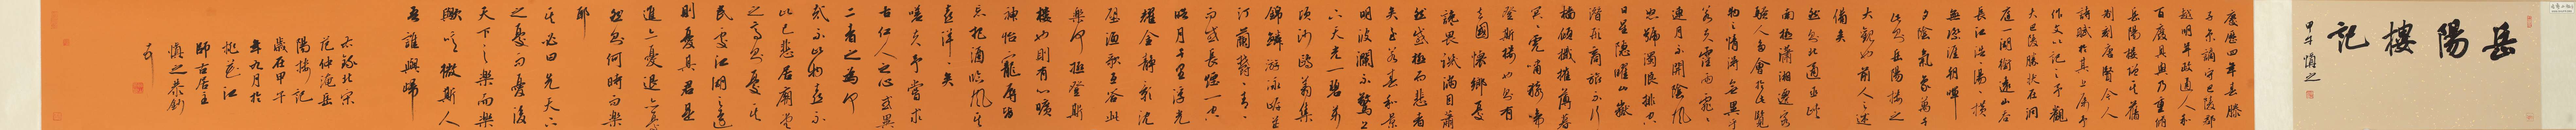 岳陽樓記
甲午 慎之
慶歷四年春滕
子京謫守巴陵郡
越明年政通人和
百廢具興乃重脩
岳陽樓增其舊
制刻唐賢今人
詩賦於其上屬予
作文以記之予觀
夫巴陵勝狀在洞
庭一湖銜遠山吞
長江浩浩湯湯橫
無際涯朝暉
夕陰氣象萬千
此則岳陽樓之
大觀也前人之述
備矣
然則北通巫峽
南極瀟湘遷客
騷人多會於此覽
物之情得無異乎
若夫霪雨霏霏
連月不開陰風
怒號濁浪排空
日星隱曜山嶽
潛形商旅不行
檣傾檝摧薄暮
冥冥虎嘯猿啼
登斯樓也則有
去國懷鄉憂
讒畏譏滿目蕭
然感極而悲者
矣至若春和景
明波瀾不驚上
下天光一碧萬
頃沙鷗翔集
錦鱗游泳岸芷
汀蘭郁郁青青
而或長煙一空
皓月千里浮光
耀金靜影沈
璧漁歌互答此
樂何極登斯
樓也則有心曠
神怡寵辱皆
忘把酒臨風其
喜洋洋者矣
嗟夫予嘗求
古仁人之心或異
二者之為何
哉不以物喜不
以己悲居廟堂
之高則憂其
民處江湖之遠
則憂其君是
進亦憂退亦憂
然則何時而樂
耶
其必曰先天下
之憂而憂後
天下之樂而樂
歟噫微斯人
吾誰與歸
右錄北宋
范仲淹岳
陽樓記
歲在甲午
年九月於
桃花江
師古居主
慎之恭鈔